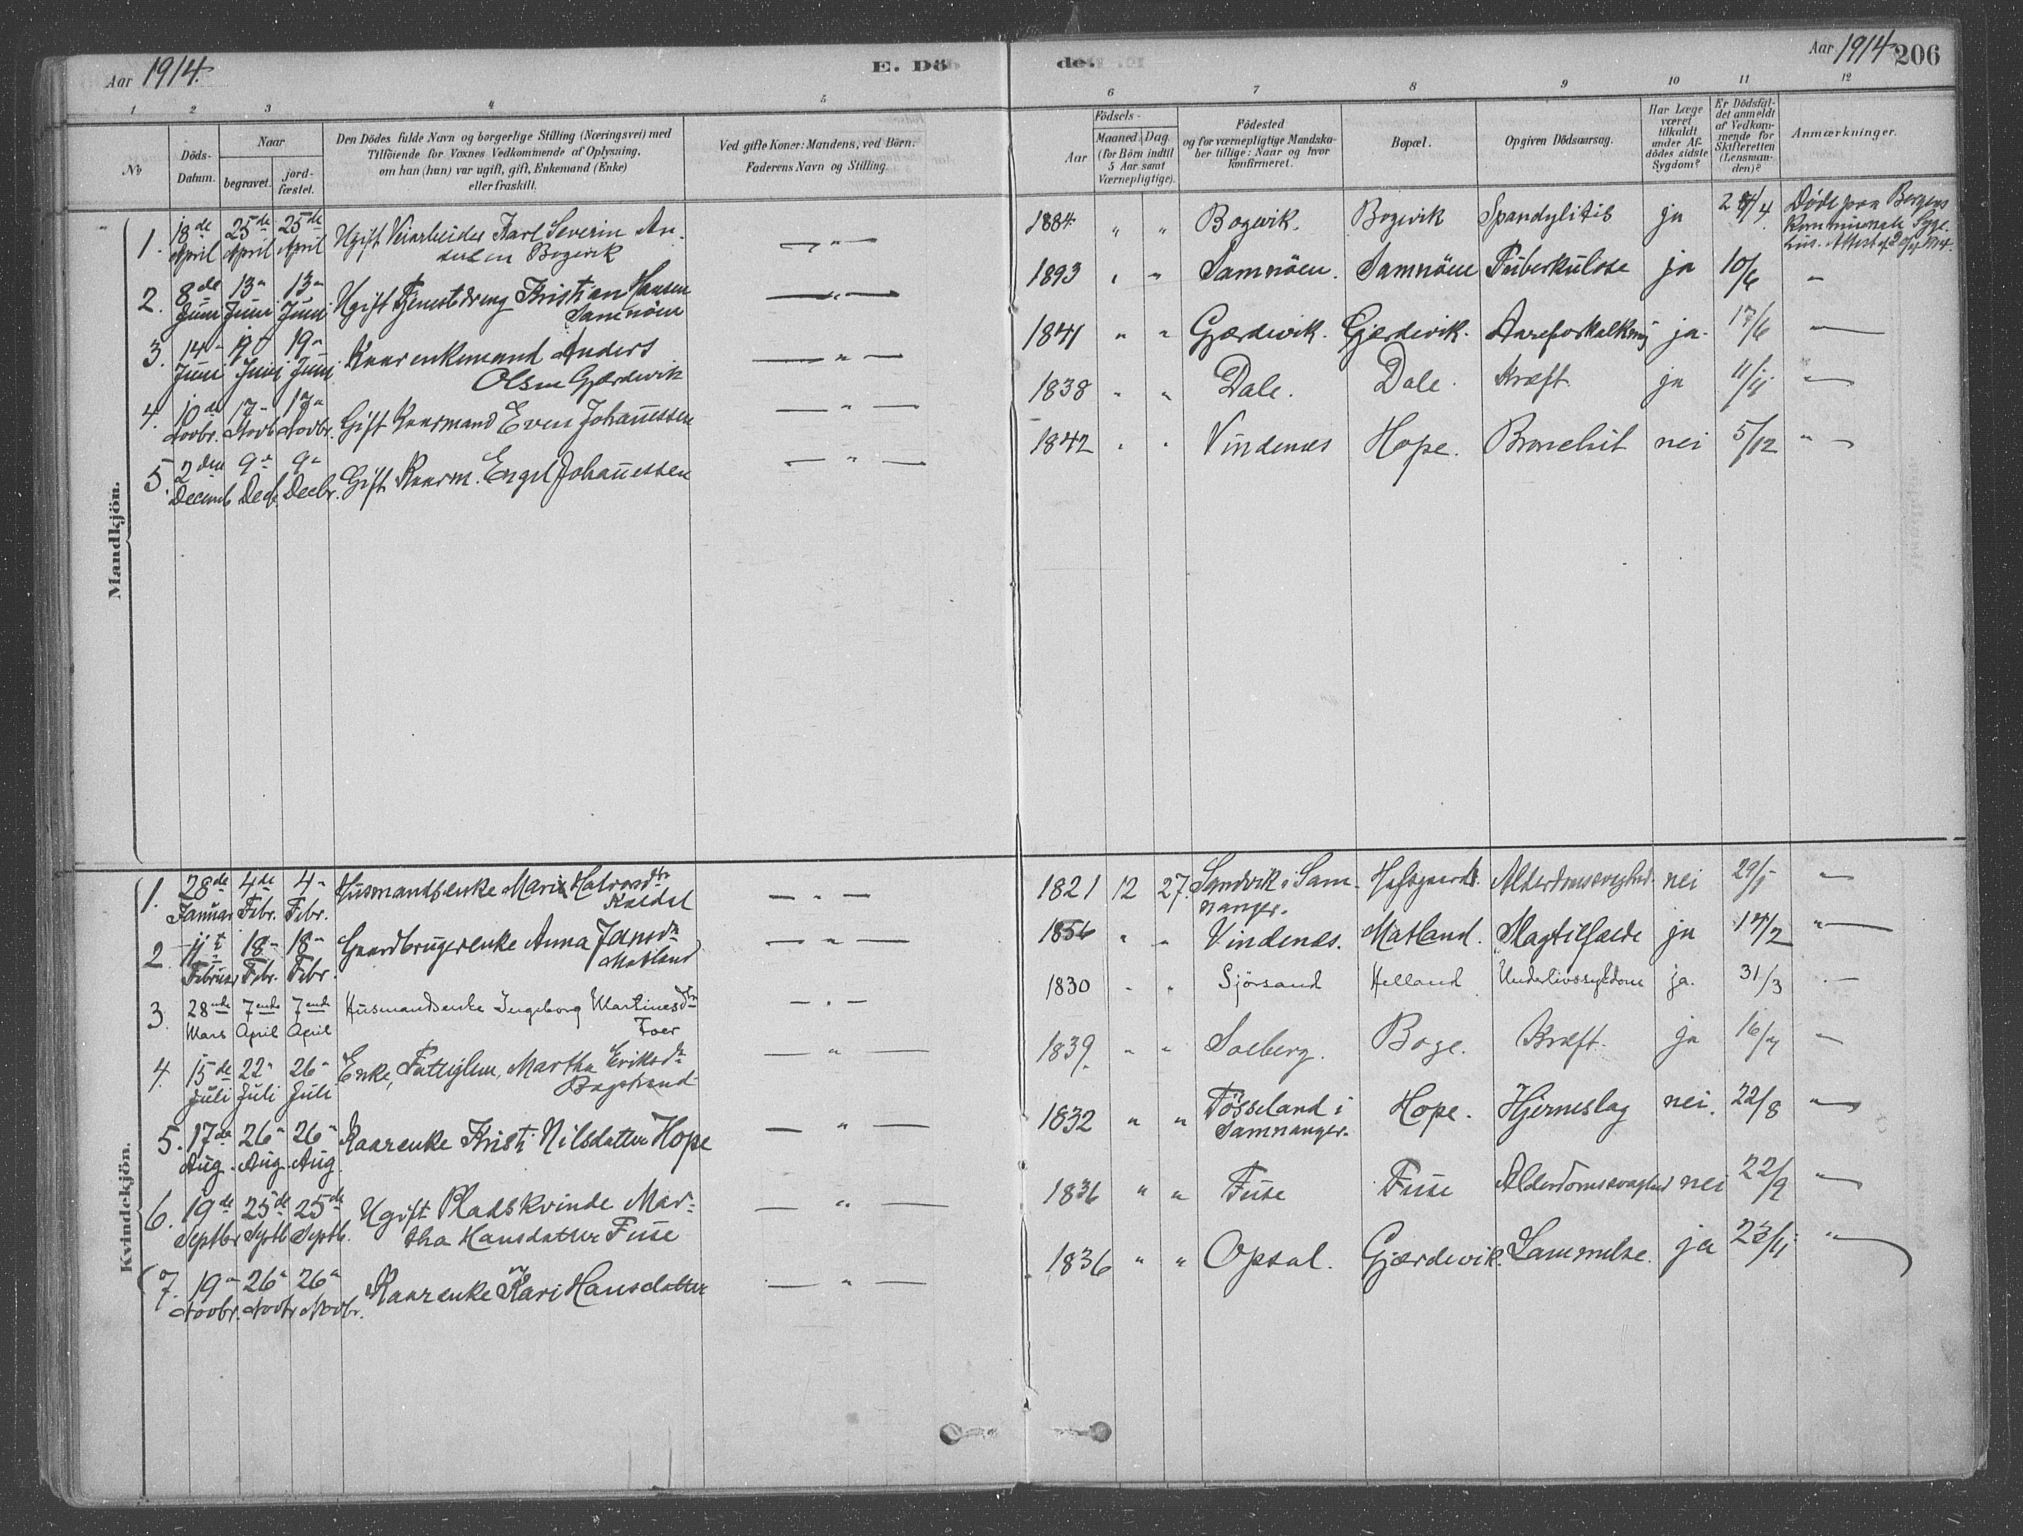 Aar 1914. E. Dö de. Aar 1914 206
1 2 3 4 5 6 7 8 9 10 11 12
No
Döds-Datum.
Naar
begravet.
jord-fæstet.
Den Dödes fulde Navn og borgerlige Stilling (Næringsvei) med
Tilföiende for Voxnes Vedkommende af Oplysning,
om han (hun) var ugift, gift, Enkemand (Enke)
eller fraskilt.
Ved gifte Koner: Mandens, ved Börn:
Faderens Navn og Stilling.
Födsels-
Aar
Maaned. Dag.
(for Börn indtil
5 Aar samt
Værnepligtige).
Födested
og for værnepligtige Mandska-
ber tillige: Naar og hvor
konfirmeret.
Bopæl.
Opgiven Dödsaarsag.
Har Læge
været
tilkaldt
under Af-
dödes sidste
Sygdom?
Er Dödsfal-
det anmeldt
af Vedkom-
mende for
Skifteretten
(Lensman-
den)?
Anmærkninger.
Mandkjön.
1. 18de April 25de April 25de April Ugift Veiarbeider Karl Severin An-
dersen Bogevik — " — 1884 " " Bogevik. Bogevik Spondylitis ja Döde paa Bergens
Kommunale Syge-
hus.
2. 8de Juni 13" Juni 13" Juni Ugift Tjenestdreng Kristian Hansen
Samnöen — " — 1893 " " Samnöen. Samnöen Tuberkulose ja 10/6 "
3. 14" Juni 19" Juni 19" Juni Kaarenkemand Anders
Olsen Gjærdevik — " — 1841 " " Gjærdevik. Gjerdevik. Aareforkalkning ja. 17/6 "
4. 10de Novbr. 17" Novb 17" Novbr. Gift Kaarmand Even Johannessen — " — 1838 " " Dale. Dale. Kræft. ja 11/11 "
5. 2den Decemb 9de Decb. 9" Decbr. Gift Kaarm. Engel Johannessen — " — 1842 " " Vindenes Hope. Bronchit nei 5/12 "
Kvindekjön.
1. 28de Januar 4de Febr. 4" Febr. Husmandsenke Mari Halvorsdtr
Kaldal — " — 1821 12 27. Sandvik i Sam-
nanger. Hafsgaard. Alderdomssvaghed nei 29/1 "
2. 11te Februar 18" Febr. 18" Febr Gaardbrugerenke Anna Jansdtr
Matland — " — 1856 " " Vindenes. Matland. Slagtilfælde ja 14/2 "
3. 28nde Mars 7ende April 7ende April Husmandsenke Ingeborg Martinesdtr
Toer — " — 1830 " " Sjörsand Helland Underlivssygdom ja. 31/3 "
4. 15de Juli 22" Juli 26" Juli Enke, Fattiglem, Martha Eriksdtr
Bogstrand — " — 1839. " " Solberg. Boge. Kræft. ja 16/7 "
5. 17de Aug. 26" Aug. 26" Aug Kaarenke Kristi Nilsdatter Hope — " — 1832 " " Tösseland i
Samnanger. Hope. Hjerneslag nei. 22/8 "
6. 19de Septbr 25de Septb 25de Septb. Ugift Pladskvinde Mar-
tha Hansdatter Fuse — " — 1836 " " Fuse Fuse Alderdomssvaghed nei 22/9 "
7. 19" Novbr. 26" Novbr 26" Novbr. Kaarenke Kari Hansdatter — " — 1836 " " Opsal. Gjærdevik. Lammelse. ja 23/11. "